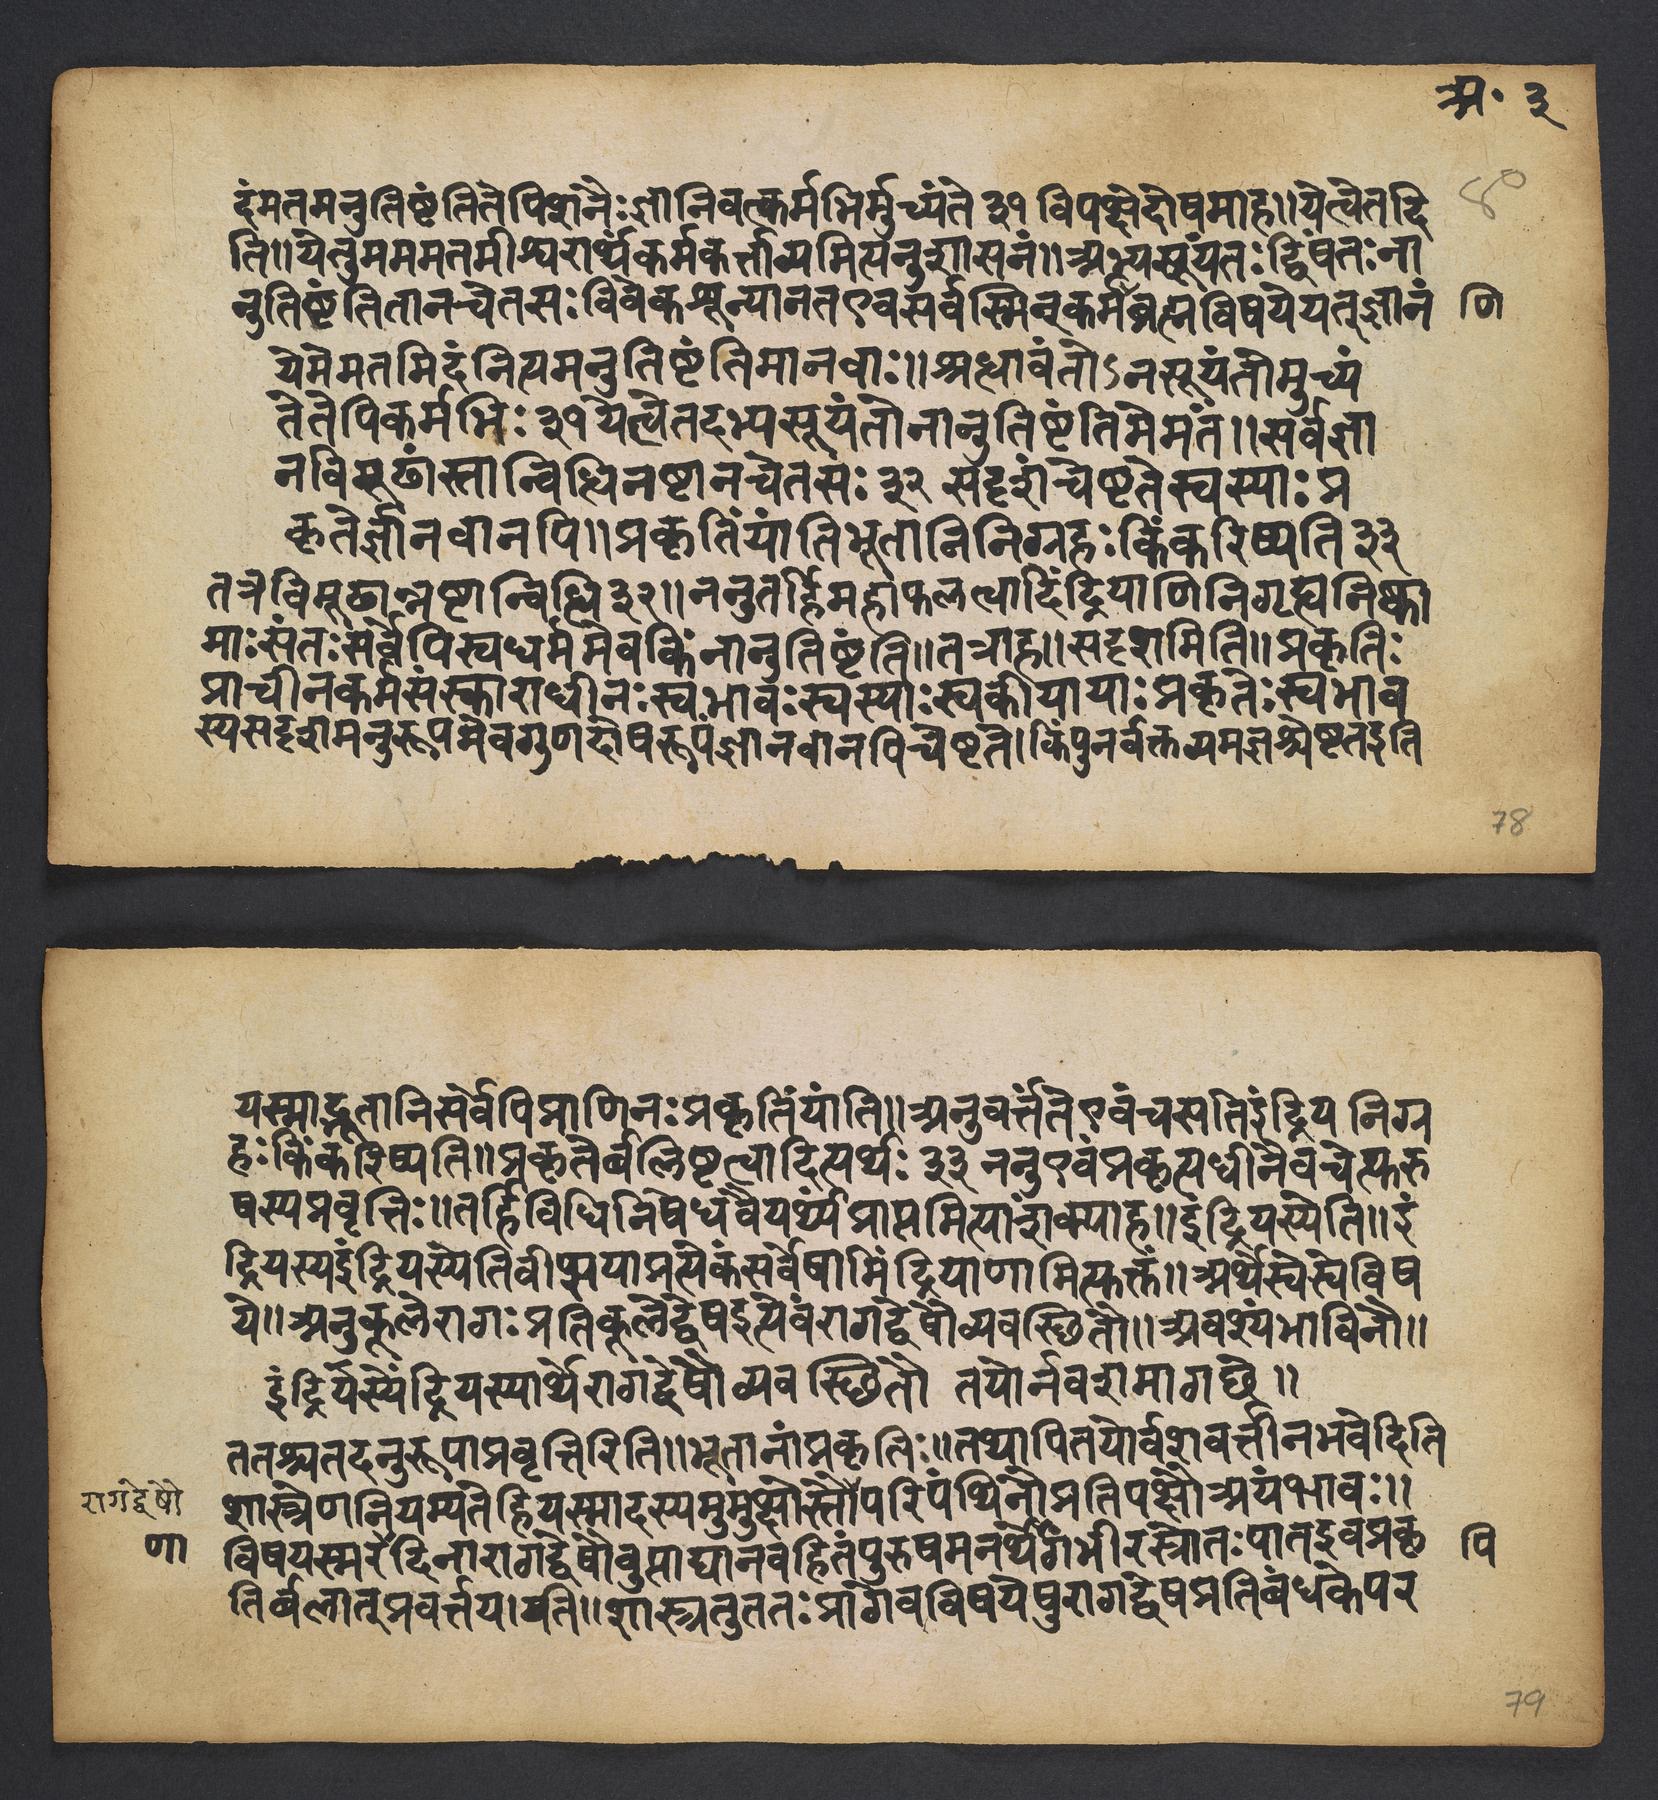 अ॰ ३
४०
दंमतमनुतिष्टंतितेपिशनैःज्ञानिवत्कर्मभिर्मुच्यंते ३१ विपक्षेदोषमाह॥येत्वेतदि
ति॥येतुमममतमीश्वरार्थंकर्मकर्त्तव्यमित्यनुशासनं॥अभ्यसूयंतःद्विषंतःना
नुतिष्टंतितानचेतसःविवेकशून्यानतएवसर्वस्मिन्कर्मब्रह्मविषयेयत्ज्ञानं
णि
येमेमतमिदंनित्यमनुतिष्टंतिमानवाः॥श्रधावंतोऽनसूयंतोमुच्यं
तेतेपिकर्मभिः ३१ येत्वेतदभ्यसूयंतोनानुतिष्टंतिमेमतं॥सर्वज्ञा
नविमूढांस्तान्विधिनष्टानचेतसः ३२ सदृशंचेष्टतेस्वस्याः प्र
कृतेर्ज्ञानवानपि॥प्रकृतिंयांतिभूतानिनिग्रहःकिंकरिष्यति ३३
तत्रविमूढान्नष्टान्विधि ३२॥ननुतर्हिमहाफलत्वादिंद्रियाणिनिगृह्यनिष्का
माःसंतःसर्वेपिस्वधर्ममेवकिंनानुतिष्टंति॥तत्राह॥सदृशमिति॥प्रकृतिः
प्राचीनकर्मसंस्काराधीनःस्वभावःस्वस्याःस्वकीयायाःप्रकृतेःस्वभाव
स्यसदृशमनुरूपमेवगुणदोषरूपंज्ञानवानपिचेष्टते।किंपुनर्वक्तव्यमज्ञश्चेष्टतइति
78
यस्माद्भूतानिसर्वेपिप्राणिनःप्रकृतिंयांति॥अनुवर्त्ततेएवंचसतिइंद्रियनिग्र
हःकिंकरिष्यति॥प्रकृतेर्बलिष्टत्वादित्यर्थः ३३ ननुएवंप्रकृत्यधीनैवचेत्पुरु
षस्यप्रवृत्तिः॥तर्हिविधिनिषेधवैयर्थ्यंप्राप्तमित्याशंक्याह॥इंद्रियस्येति॥इं
द्रियस्यइंद्रियस्येतिवीप्सयाप्रत्येकंसर्वेषामिंद्रियाणामित्युक्तं॥अर्थेस्वेस्वेविष
ये॥अनुकूलेरागःप्रतिकूलेद्वेषइत्येवंरागद्वेषौव्यवस्छितौ॥अवश्यंभाविनौ॥
इंद्रियस्येंद्रियस्यार्थेरागद्वेषौव्यवस्छितौ तयोर्नवशमागछे॥
ततश्चतदनुरूपाप्रवृत्तिरिति॥भूतानांप्रकृतिः॥तथापितयोर्वशवर्त्तीनभवेदिति
शास्त्रेणनियम्यतेहियस्मादस्यमुमुक्षोस्तौपरिपंथिनौप्रतिपक्षौअयंभावः॥
रागद्वेषौ
विषयस्मरेदिनारागद्वेषौवुत्पाद्यानवहितंपुरुषमनर्थेगंभीरस्त्रोतःपातइवप्रकृ
णा
पि
तिर्बलात्प्रवर्त्तयायति॥शास्त्रंतुततःप्रागेवविषयेषुरागद्वेषप्रतिबंधकेपर
79